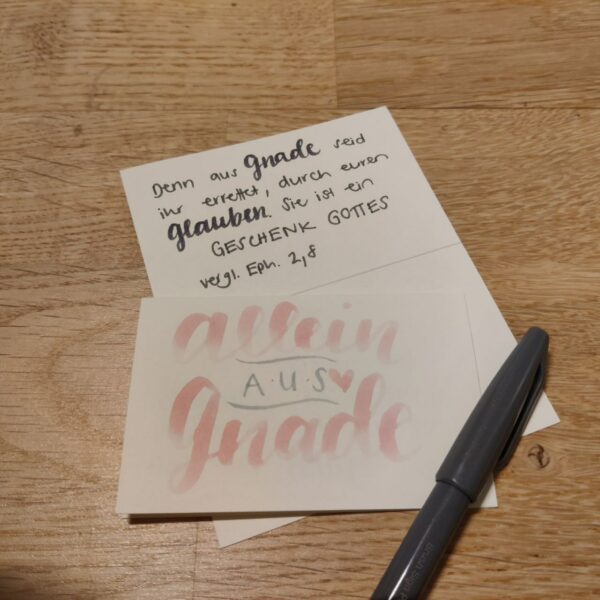 Denn aus Gnade seid
ihr errettet, durch euren
glauben. Sie ist ein
GESCHENK GOTTES
vergl. Eph. 2,8
allein
A·U·S
Gnade